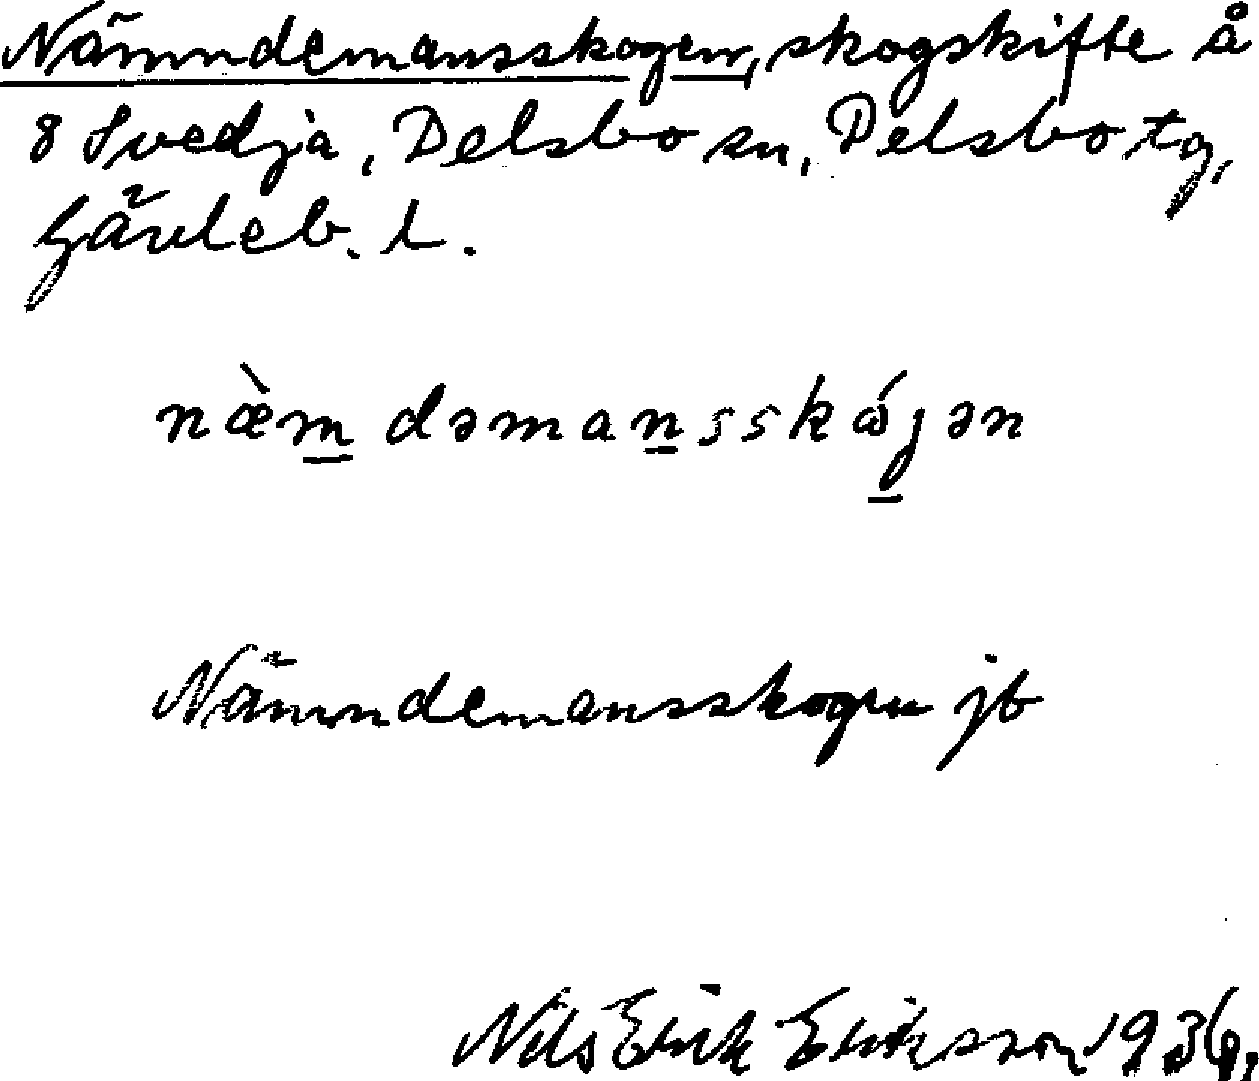 Nämndemansskogen, skogskifte å
8 Svedja, Delsbo sn, Delsbo tg,
Gävleb. l.
næ̀m dəmansskɷ́jən
Nämndemansskogen jb
Nils Erik Eriksson 1936.